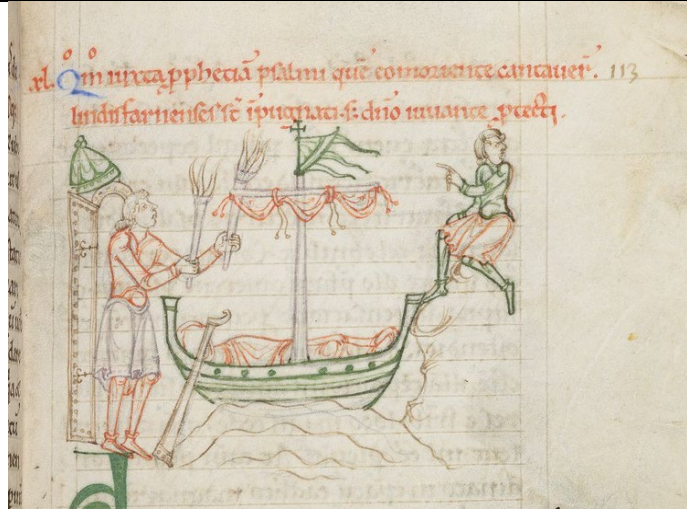 xl. Qͦmͦ iuxta ꝓphetiā psalmi quē eo moriente cantauer̄. 113
lindisfarnienses st̄ īpugnati. s; dn̄o iuuante ꝓtecti.